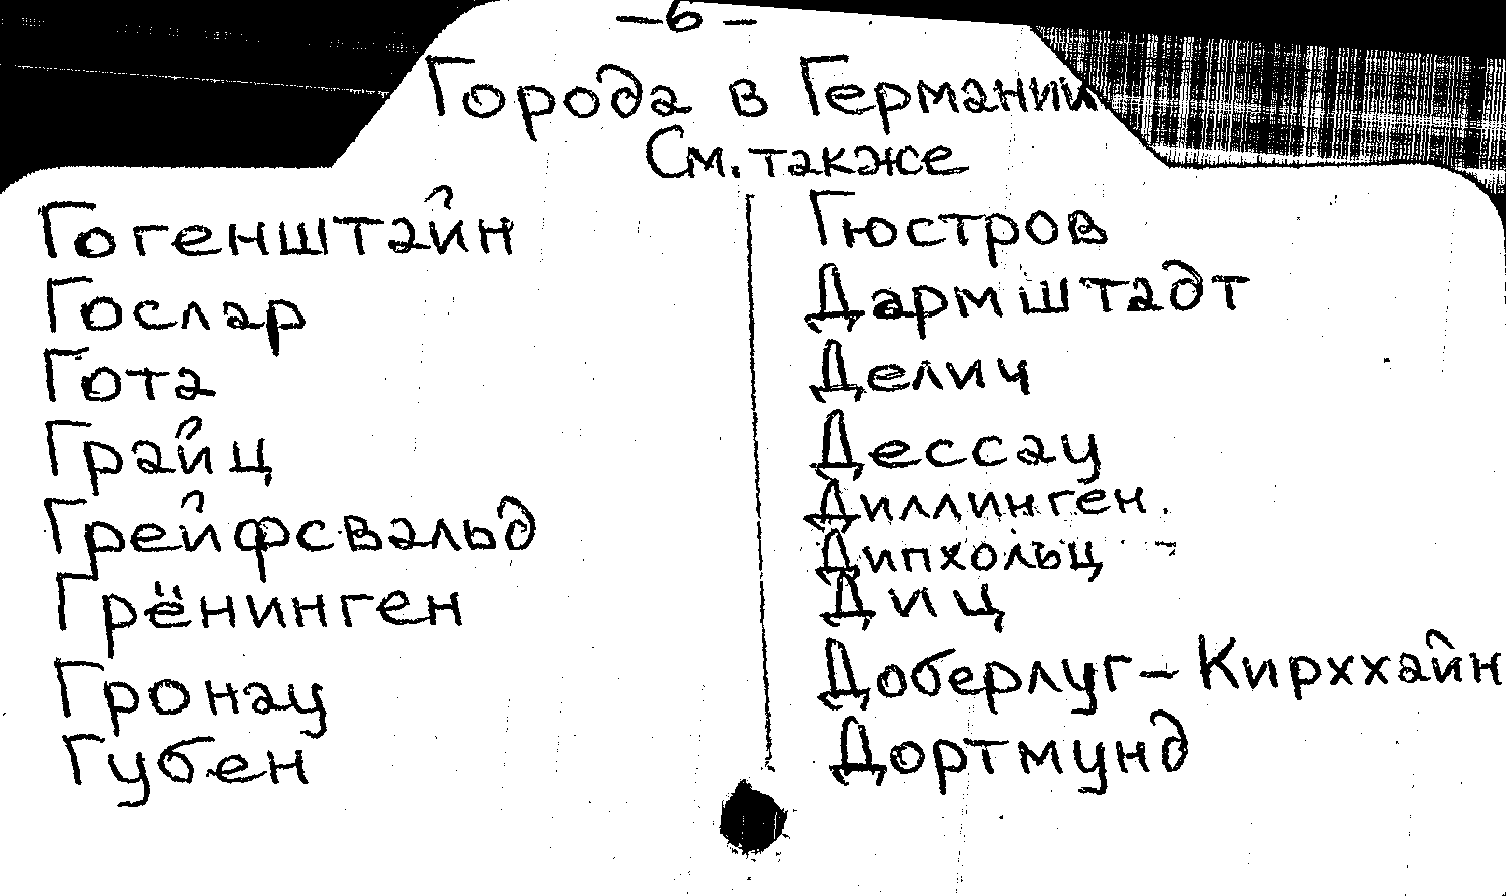 —6—
Города в Германии
См. также
Гогенштайн
Гослар
Гота
Грайц
Грейфсвальд
Грёнинген
Гронау
Губен
Гюстров
Дармштадт
Делич
Дессау
Диллинген.
Дипхольц
Диц
Доберлуг-Кирххайн
Дортмунд